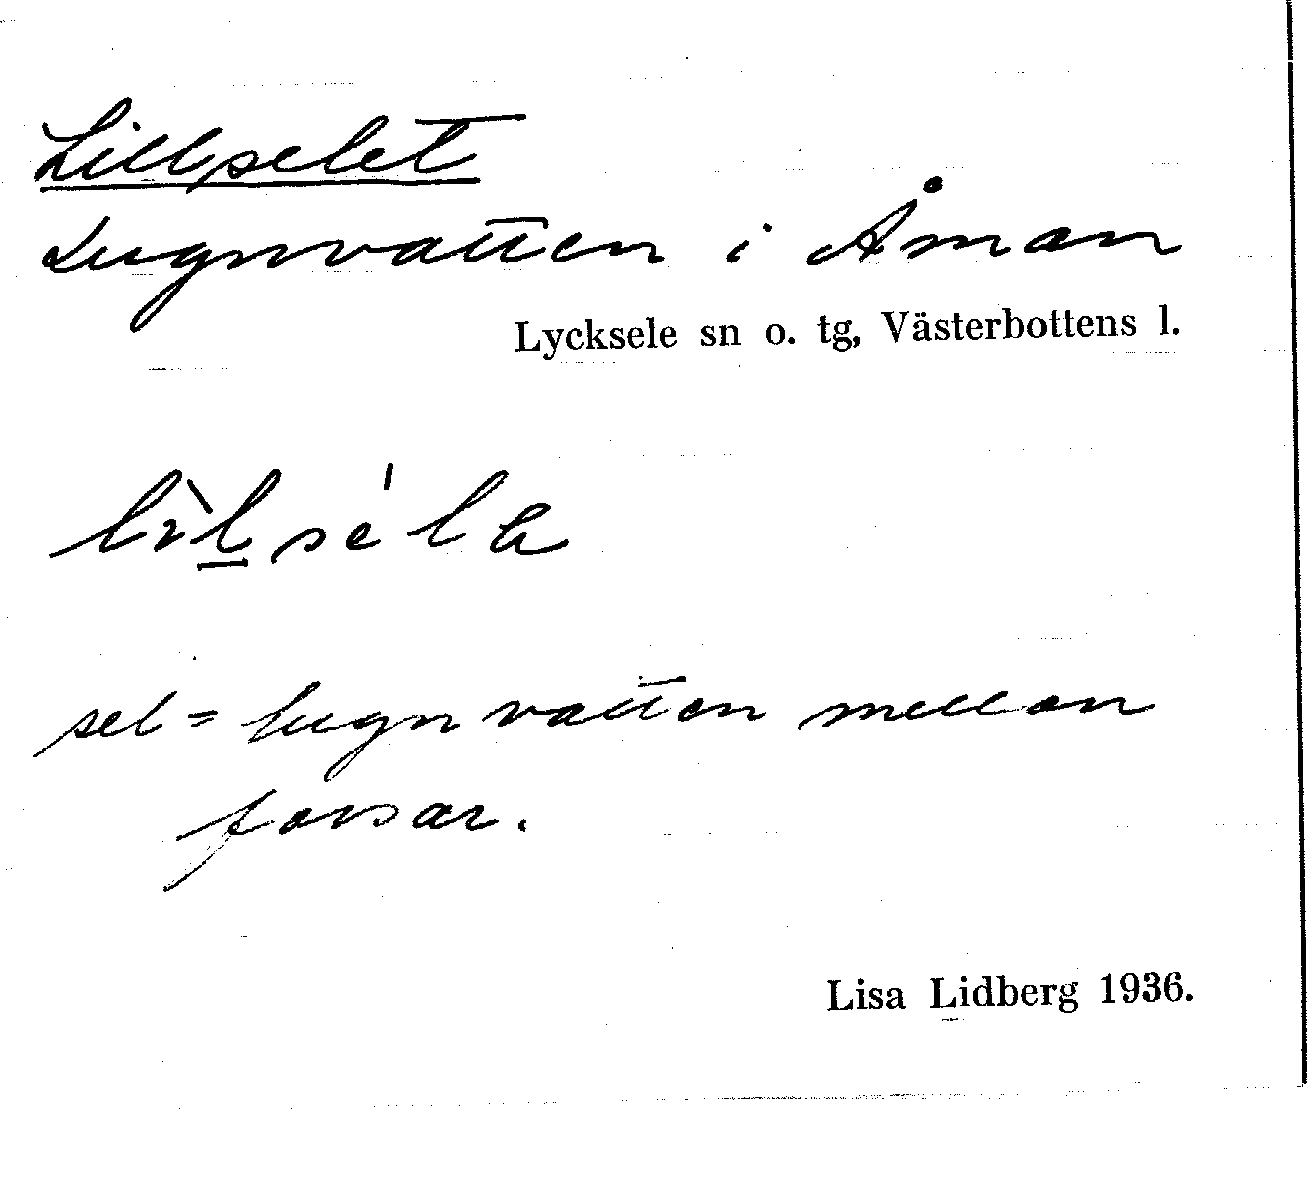 Lillselet
Lugnvatten i Åman
Lycksele sn o. tg, Västerbottens l.
sel = lugnvatten mellan
forsar.
Lisa Lidberg 1936.